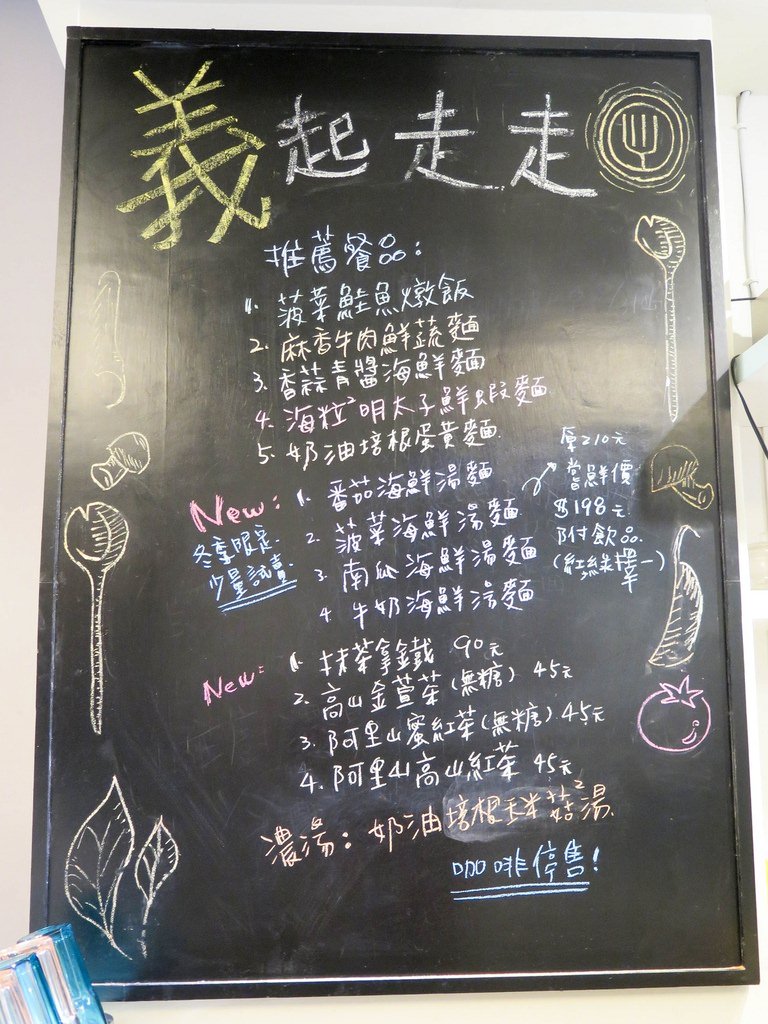 義起走走
推薦餐品:
1. 菠菜鮭魚燉飯
2. 麻香牛肉鮮蔬麵
3. 香蒜青醬海鮮麵
4. 海粒²明太子鮮蝦麵
5. 奶油培根蛋黃麵
New: 1. 番茄海鮮湯麵
冬季限定 少量試賣
2. 菠菜海鮮湯麵
3. 南瓜海鮮湯麵
4. 牛奶海鮮湯麵
厚210元
嘗鮮價
$198元
附飲品
(紅綠擇一)
New: 1. 抹茶拿鐵 90元
2. 高山金萱茶(無糖) 45元
3. 阿里山蜜紅茶(無糖) 45元
4. 阿里山高山紅茶 45元
濃湯: 奶油培根玉米菇²湯
咖啡停售!